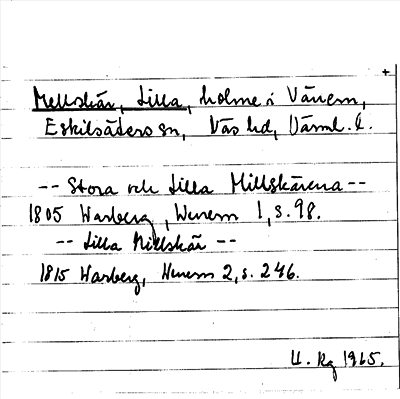 +
Mellskär, Lilla, holme i Vänern,
Eskilsäters sn, Näs hd, Värml. l.
-- Stora och Lilla Millskärena --
1805 Warberg, Wenern 1, s. 98.
-- Lilla Millskär --
1815 Warberg, Wenern 2, s. 246.
1965.